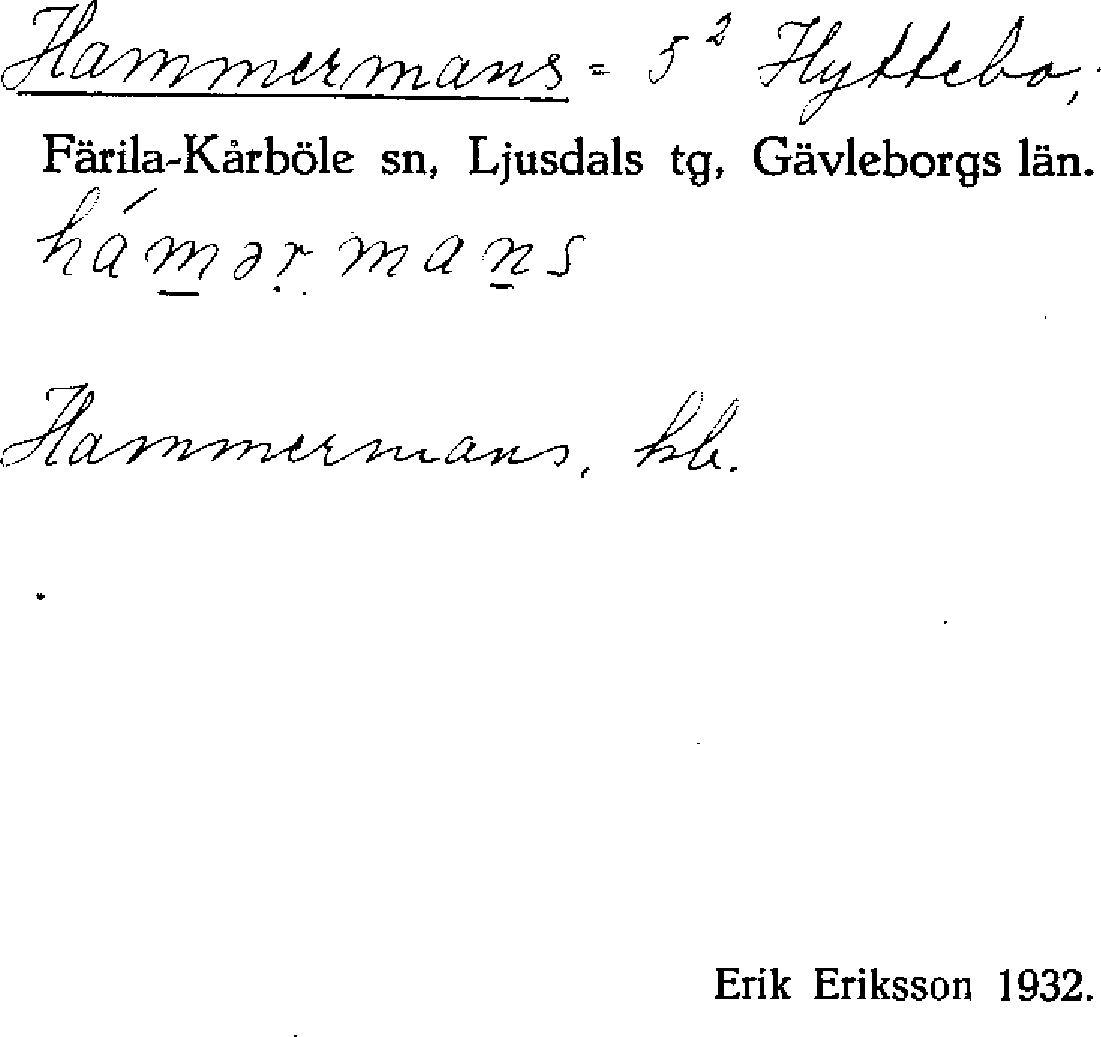 Hammermans = 5² Hyttebo,
Färila-Kårböle sn, Ljusdals tg, Gävleborgs län.
hámər mans
Hammermans, kb.
Erik Eriksson 1932.